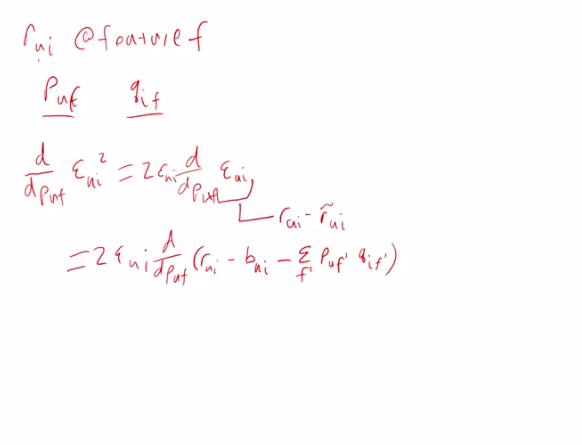 r_ui @feature f
p_uf q_if
d/dp_uf ε_ui² = 2ε_ui d/dp_uf ε_ui
r_ui - r̃_ui
= 2ε_ui d/dp_uf (r_ui - b_ui - Σ_f' p_uf' q_if')